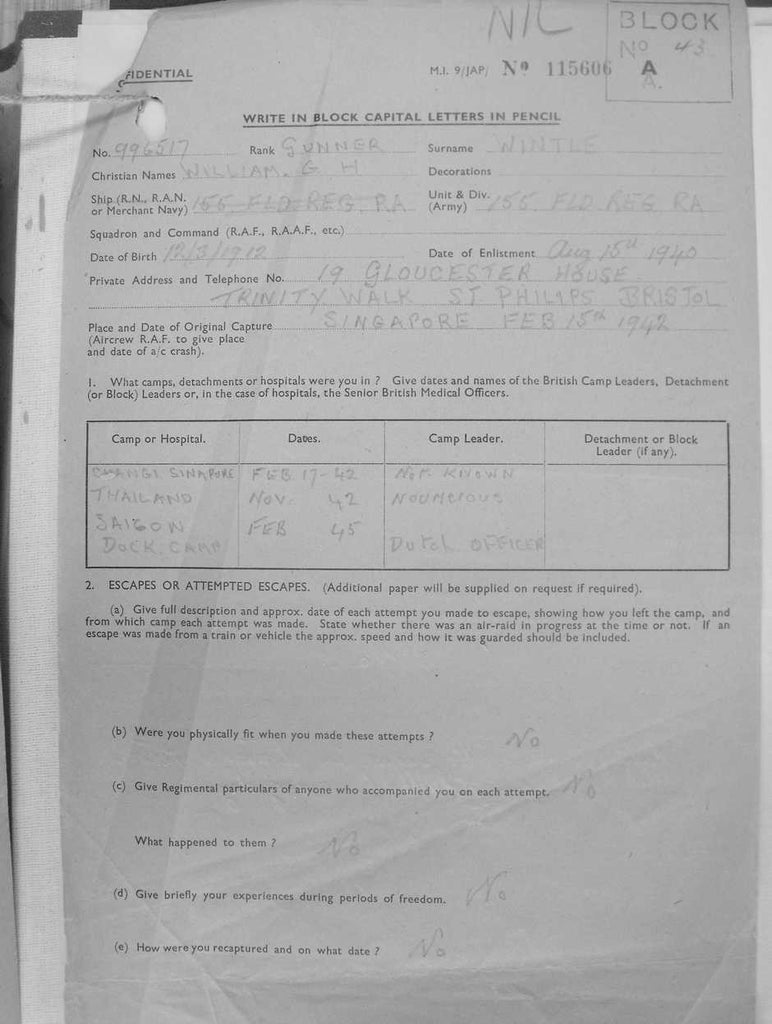 NIL
BLOCK
No 43
A
A.
IDENTIAL
M.I. 9/JAP/ No 115606
WRITE IN BLOCK CAPITAL LETTERS IN PENCIL
No. 996517 Rank GUNNER Surname WINTLE
Christian Names WILLIAM. G H Decorations
Ship (R.N., R.A.N. or Merchant Navy) 155 FLD REG RA Unit & Div. (Army) 155 FLD REG RA
Squadron and Command (R.A.F., R.A.A.F., etc.)
Date of Birth 12/3/1912 Date of Enlistment Aug 15th 1940
Private Address and Telephone No. 19 GLOUCESTER HOUSE
TRINITY WALK ST PHILIPS BRISTOL
Place and Date of Original Capture SINGAPORE FEB 15th 1942
(Aircrew R.A.F. to give place
and date of a/c crash).
1. What camps, detachments or hospitals were you in ? Give dates and names of the British Camp Leaders, Detachment
(or Block) Leaders or, in the case of hospitals, the Senior British Medical Officers.
Camp or Hospital. Dates. Camp Leader. Detachment or Block
Leader (if any).
CHANGI SINAPORE FEB 17-42 Not KNOWN
THAILAND NOV. 42 NOUMEIOUS
SAIGON FEB 45
DOCK CAMP Dutch OFFICER
2. ESCAPES OR ATTEMPTED ESCAPES. (Additional paper will be supplied on request if required).
(a) Give full description and approx. date of each attempt you made to escape, showing how you left the camp, and
from which camp each attempt was made. State whether there was an air-raid in progress at the time or not. If an
escape was made from a train or vehicle the approx. speed and how it was guarded should be included.
(b) Were you physically fit when you made these attempts ? No
(c) Give Regimental particulars of anyone who accompanied you on each attempt. No
What happened to them ? No
(d) Give briefly your experiences during periods of freedom. No
(e) How were you recaptured and on what date ? No